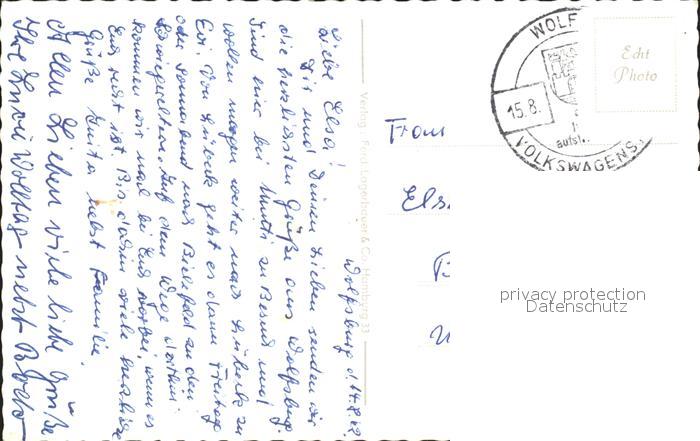 Wolfsburg d. 14.8.62
Liebe Elsa!
Dir und Deinen Lieben senden wir
die herzlichsten Grüße aus Wolfsburg.
Sind hier bei Mutti zu Besuch und
wollen morgen weiter nach Lübeck zu
Evi. Von Lübeck geht es dann Freitag
oder Sonnabend nach Bielefeld zu den
Schwiegereltern. Auf dem Wege dorthin
kommen wir mal bei Euch vorbei, wenn es
Euch recht ist. Bis dahin viele herzliche
Grüße Anita nebst Familie.
Allen Lieben viele liebe Grüße
Ihre Luzie Wolltag nebst
Verlag: Foto-Lagenhauer & Co., Hamburg 33
WOLF
15.8.
aufst.
VOLKSWAGENS
Echt
Photo
Frau
Els
privacy protection
Datenschutz